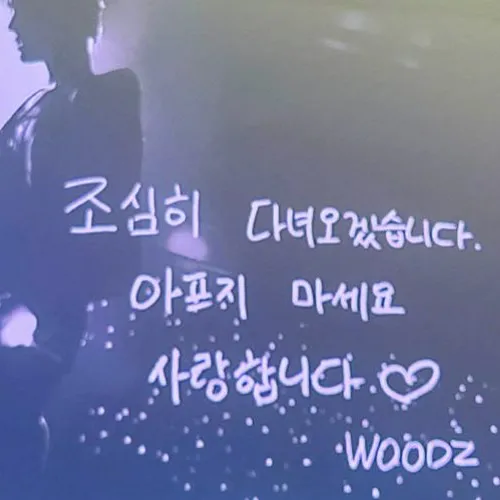 조심히 다녀오겠습니다.
아프지 마세요
사랑합니다.♡
WOODZ